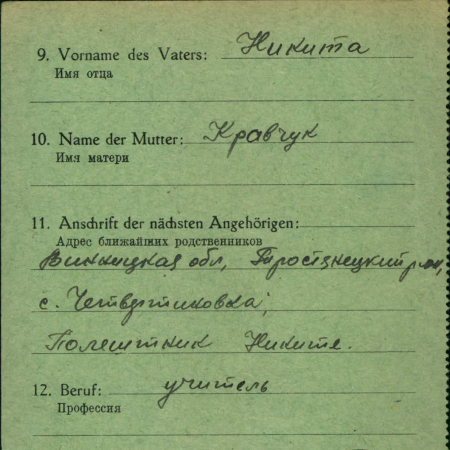 9. Vorname des Vaters: Никита
Имя отца
10. Name der Mutter: Кравчук
Имя матери
11. Anschrift der nächsten Angehörigen:
Адрес ближайших родственников
Винницкая обл, Тростянецкий р-он,
с. Четвертиновка;
Полештник Никите.
12. Beruf: учитель
Профессия